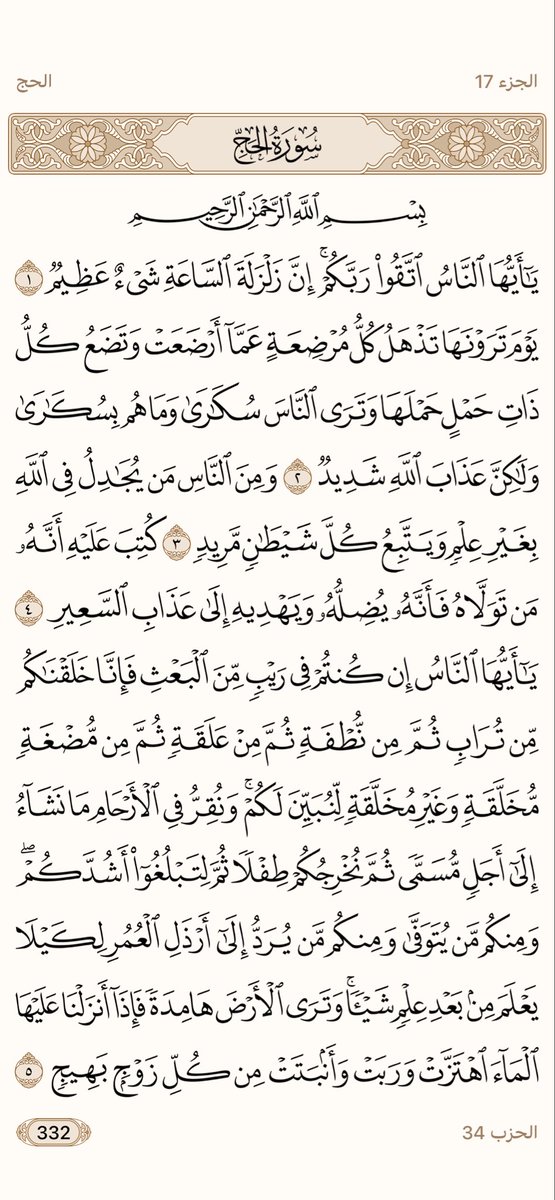 الجزء 17
الحج
سُورَةُ الحَجّ
بِسْمِ ٱللَّهِ ٱلرَّحْمَٰنِ ٱلرَّحِيمِ
يَٰٓأَيُّهَا ٱلنَّاسُ ٱتَّقُوا۟ رَبَّكُمْ ۚ إِنَّ زَلْزَلَةَ ٱلسَّاعَةِ شَىْءٌ عَظِيمٌ ١
يَوْمَ تَرَوْنَهَا تَذْهَلُ كُلُّ مُرْضِعَةٍ عَمَّآ أَرْضَعَتْ وَتَضَعُ كُلُّ
ذَاتِ حَمْلٍ حَمْلَهَا وَتَرَى ٱلنَّاسَ سُكَٰرَىٰ وَمَا هُم بِسُكَٰرَىٰ
وَلَٰكِنَّ عَذَابَ ٱللَّهِ شَدِيدٌ ٢ وَمِنَ ٱلنَّاسِ مَن يُجَٰدِلُ فِى ٱللَّهِ
بِغَيْرِ عِلْمٍ وَيَتَّبِعُ كُلَّ شَيْطَٰنٍ مَّرِيدٍ ٣ كُتِبَ عَلَيْهِ أَنَّهُۥ
مَن تَوَلَّاهُ فَأَنَّهُۥ يُضِلُّهُۥ وَيَهْدِيهِ إِلَىٰ عَذَابِ ٱلسَّعِيرِ ٤
يَٰٓأَيُّهَا ٱلنَّاسُ إِن كُنتُمْ فِى رَيْبٍ مِّنَ ٱلْبَعْثِ فَإِنَّا خَلَقْنَٰكُم
مِّن تُرَابٍ ثُمَّ مِن نُّطْفَةٍ ثُمَّ مِنْ عَلَقَةٍ ثُمَّ مِن مُّضْغَةٍ
مُّخَلَّقَةٍ وَغَيْرِ مُخَلَّقَةٍ لِّنُبَيِّنَ لَكُمْ ۚ وَنُقِرُّ فِى ٱلْأَرْحَامِ مَا نَشَآءُ
إِلَىٰٓ أَجَلٍ مُّسَمًّى ثُمَّ نُخْرِجُكُمْ طِفْلًا ثُمَّ لِتَبْلُغُوٓا۟ أَشُدَّكُمْ ۖ
وَمِنكُم مَّن يُتَوَفَّىٰ وَمِنكُم مَّن يُرَدُّ إِلَىٰٓ أَرْذَلِ ٱلْعُمُرِ لِكَيْلَا
يَعْلَمَ مِنۢ بَعْدِ عِلْمٍ شَيْـًٔا ۚ وَتَرَى ٱلْأَرْضَ هَامِدَةً فَإِذَآ أَنزَلْنَا عَلَيْهَا
ٱلْمَآءَ ٱهْتَزَّتْ وَرَبَتْ وَأَنۢبَتَتْ مِن كُلِّ زَوْجٍۭ بَهِيجٍ ٥
الحزب 34
332